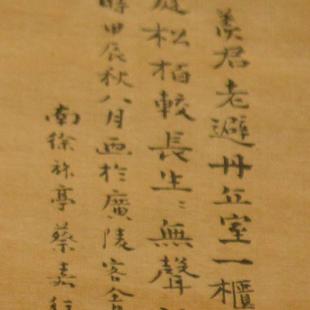 羨君老避丹丘室一櫃
松柏較長生〻無聲
時甲辰秋八月画於廣陵客舍
南徐旅亭蔡嘉